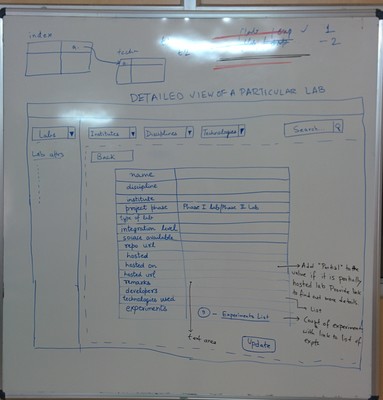 index
tech-
1
- 2
DETAILED VIEW OF A PARTICULAR LAB
Labs
Institutes
Disciplines
Technologies
Search
Lab urls
Back
name
discipline
institute
project phase Phase I lab/Phase II Lab
type of lab
integration level
source available
repo url
hosted
hosted on
hosted url
remarks
developers
technologies used
experiments
→ Add "Partial" to the
value if it is partially
hosted lab. Provide link
to find out more details.
→ List
→ Count of experiments
with link to list of
expts
Experiments List
text area
Update